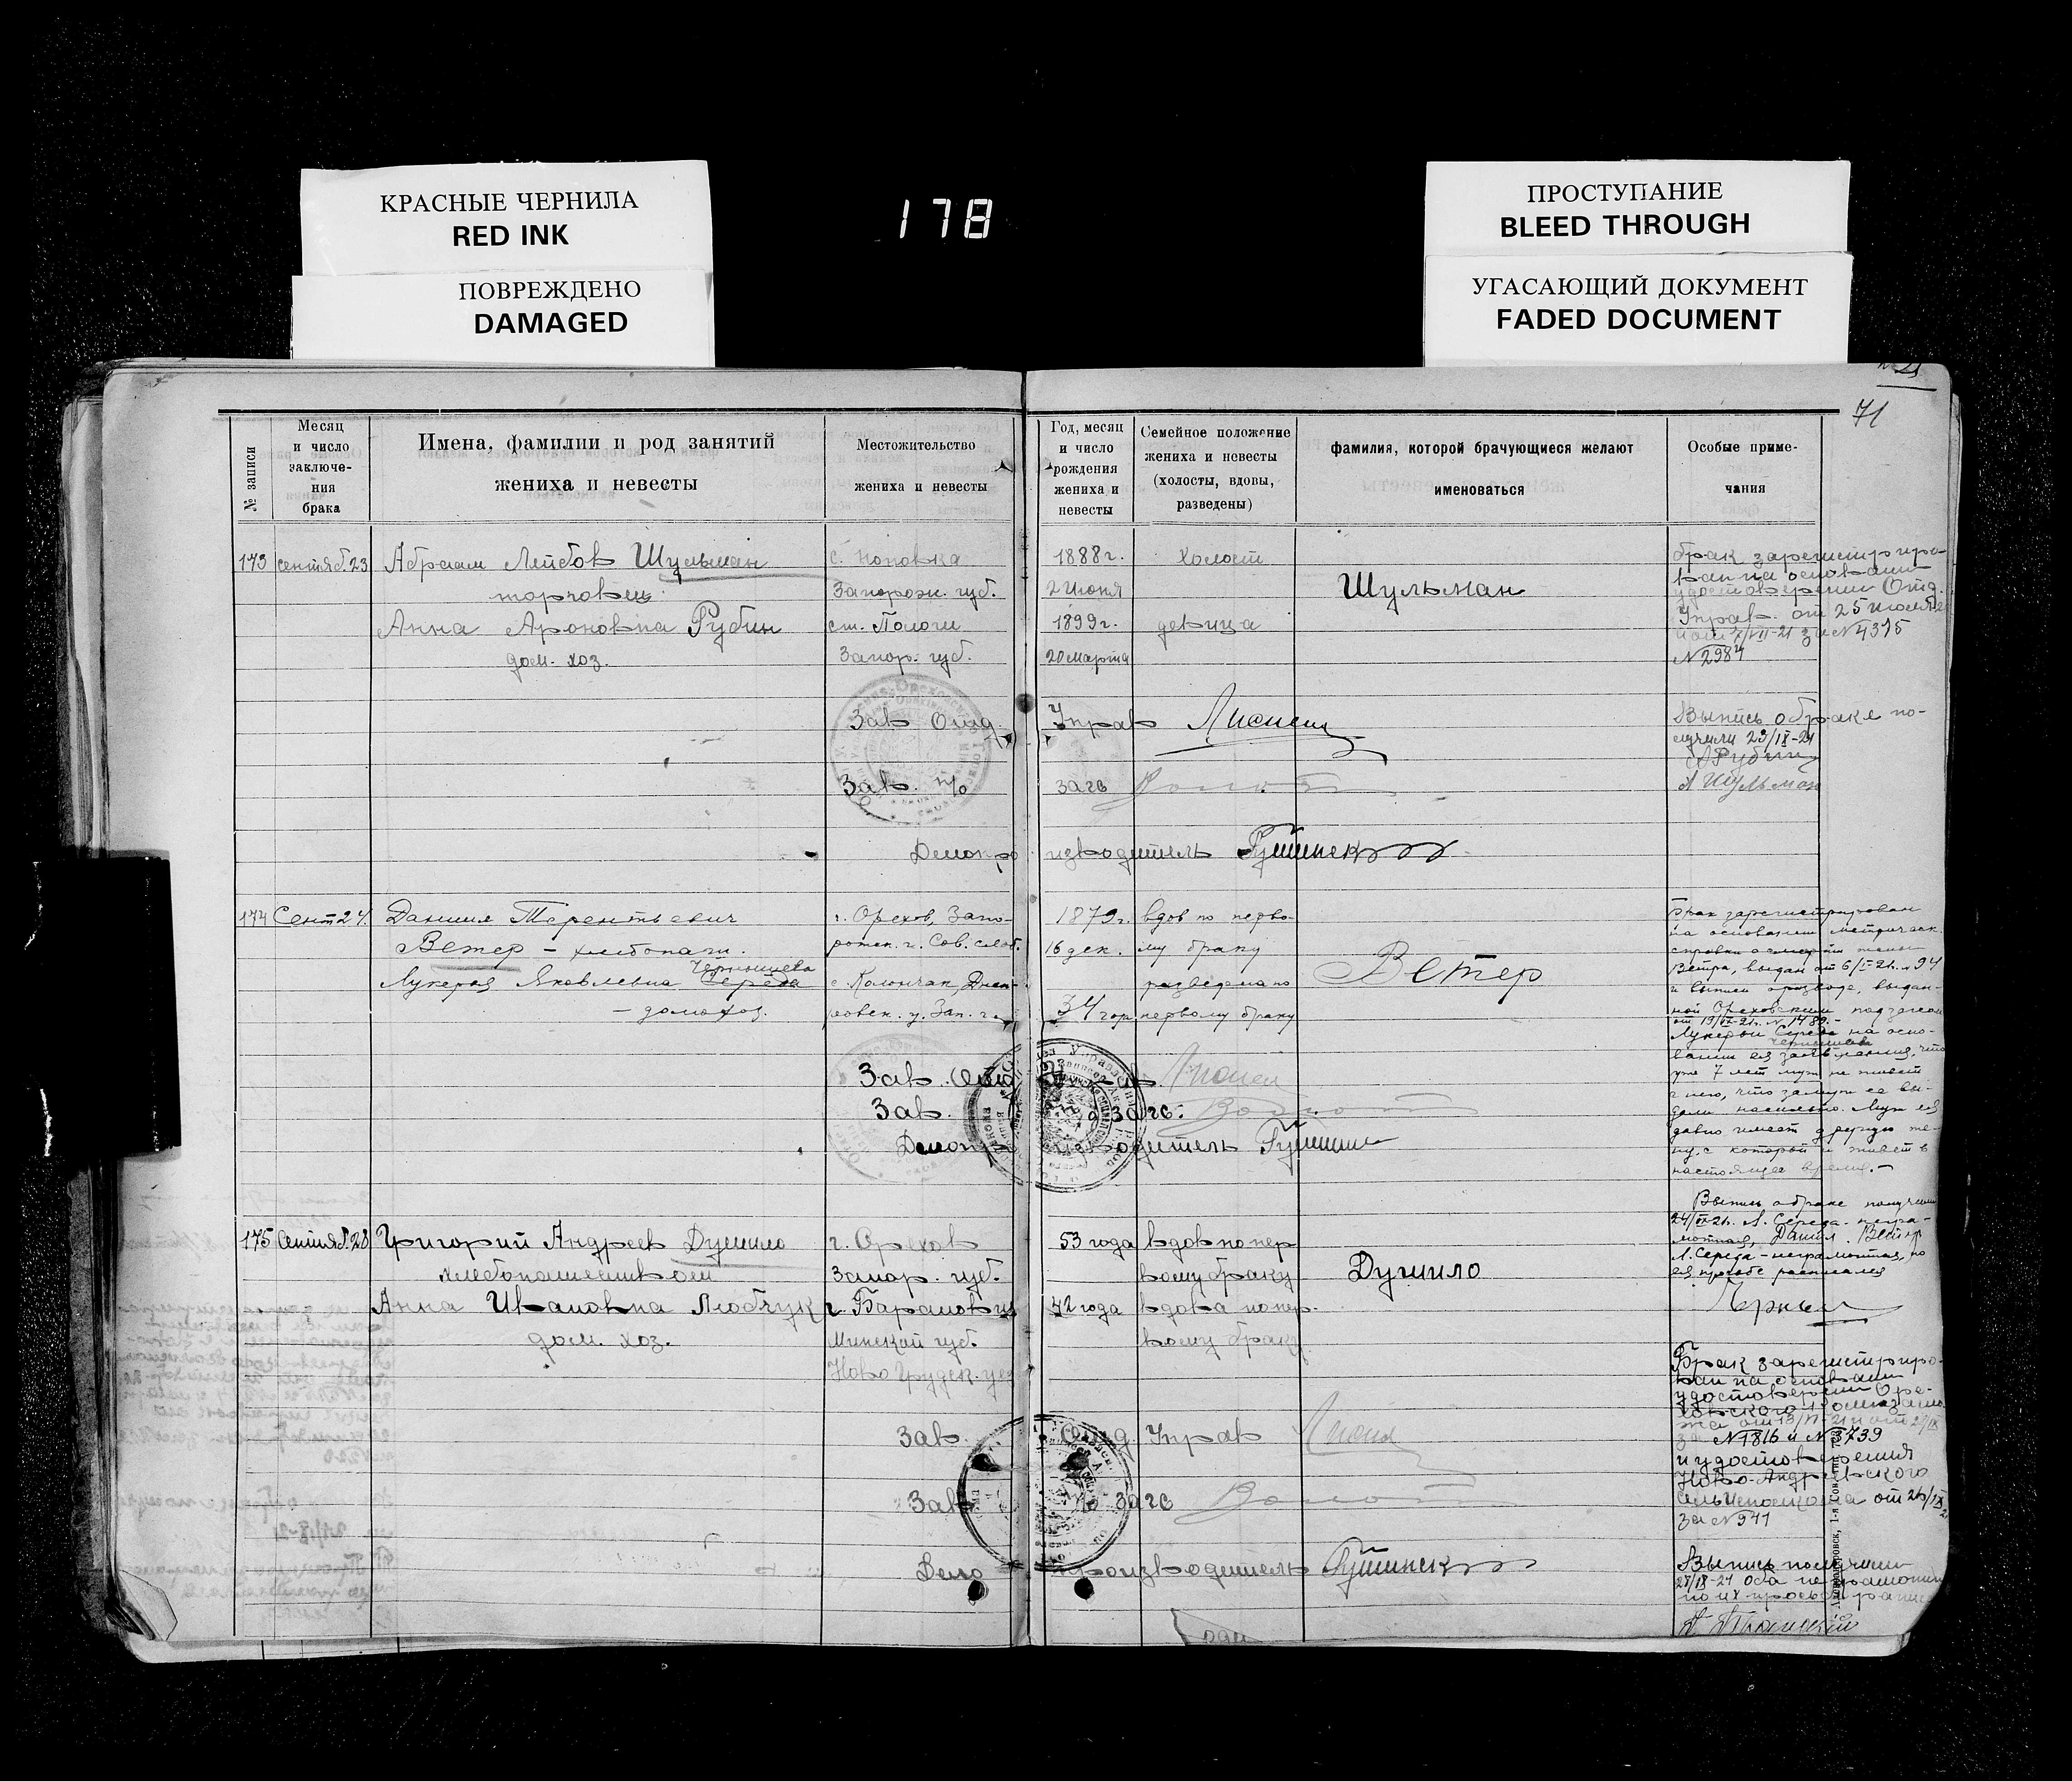 КРАСНЫЕ ЧЕРНИЛА
RED INK
ПОВРЕЖДЕНО
DAMAGED
178
ПРОСТУПАНИЕ
BLEED THROUGH
УГАСАЮЩИЙ ДОКУМЕНТ
FADED DOCUMENT
71
№ записи
Месяц
и число
заключе-
ния
брака
Имена, фамилии и род занятий
жениха и невесты
Местожительство
жениха и невесты
Год, месяц
и число
рождения
жениха и
невесты
Семейное положение
жениха и невесты
(холосты, вдовы,
разведены)
фамилия, которой брачующиеся желают
именоваться
Особые приме-
чания
173 Сентяб. 23 Абрам Лейбов Шульман
торговец
Анна Ароновна Рубин
дом. хоз.
Запорож. губ.
ст. Пологи
Запор. губ.
1888 г.
2 Июня
1899 г.
20 марта
холост
девица
Шульман
брак зарегистриро-
ван на основании
удостоверений Отд.
Управ. от 25 июля
за № 4375
№ 2984
Выпись о браке по-
лучили 23/IX-21
АРубин
А Шульман
Зав Отд. Управ
Зав. п/о загс
Делопроизводитель
174 Сент 24. Даниил Терентьевич
Ветер – хлебопаш.
Чернышева
Лукерья Яковлевна Середа
– домохоз.
г. Орехов, Запо-
рожск. г. Сов. слоб.
с. Каланчак, Днеп-
ровск. у. Зап. г.
1879 г.
16 дек.
34 год
вдов по перво-
му браку
разведена по
первому браку
Ветер
Брак зарегистрирован
на основании метрическ.
справки о смерти жены
Ветра, выдан. от 6/I-21. № 94
и выписи о разводе, выдан-
ной Ореховским подзагсом
от 19/IX-21. № 1489.-
Лукерьи Середа на осно-
Чернышева
вании ея заявления, что
уже 7 лет муж не живет
с нею, что замуж ее вы-
дали насильно. Муж ея
давно имеет другую же-
ну, с которой и живет в
настоящее время.-
Выпись о браке получили
24/IX-21. Л. Середа - негра-
мотная, Данил. Ветер
Л. Середа - неграмотная, по
ея просьбе расписался
Зав. Отд
Зав. загс:
Делопроизводитель
175 Сентяб. 28 Григорий Андреев Душило
хлебопашеством
Анна Ивановна Любчук
дом. хоз.
г. Орехов
Запор. губ.
г. Баранович
Минской губ.
Ново Грудск. уез
53 года
42 года
вдов по пер
вому браку
вдова по пер.
вому браку
Душило
Брак зарегистриро-
ван на основании
удостоверений Оре-
ховского
№ 1816 и № 3739
и удостоверения
Ново-Андреевского
от 26/IX
за № 941
Выпись получили
28/IX-21 оба неграмотны
по их просьбе
Зав. Отд. Управ
Зав. п/о загс
Делопроизводитель